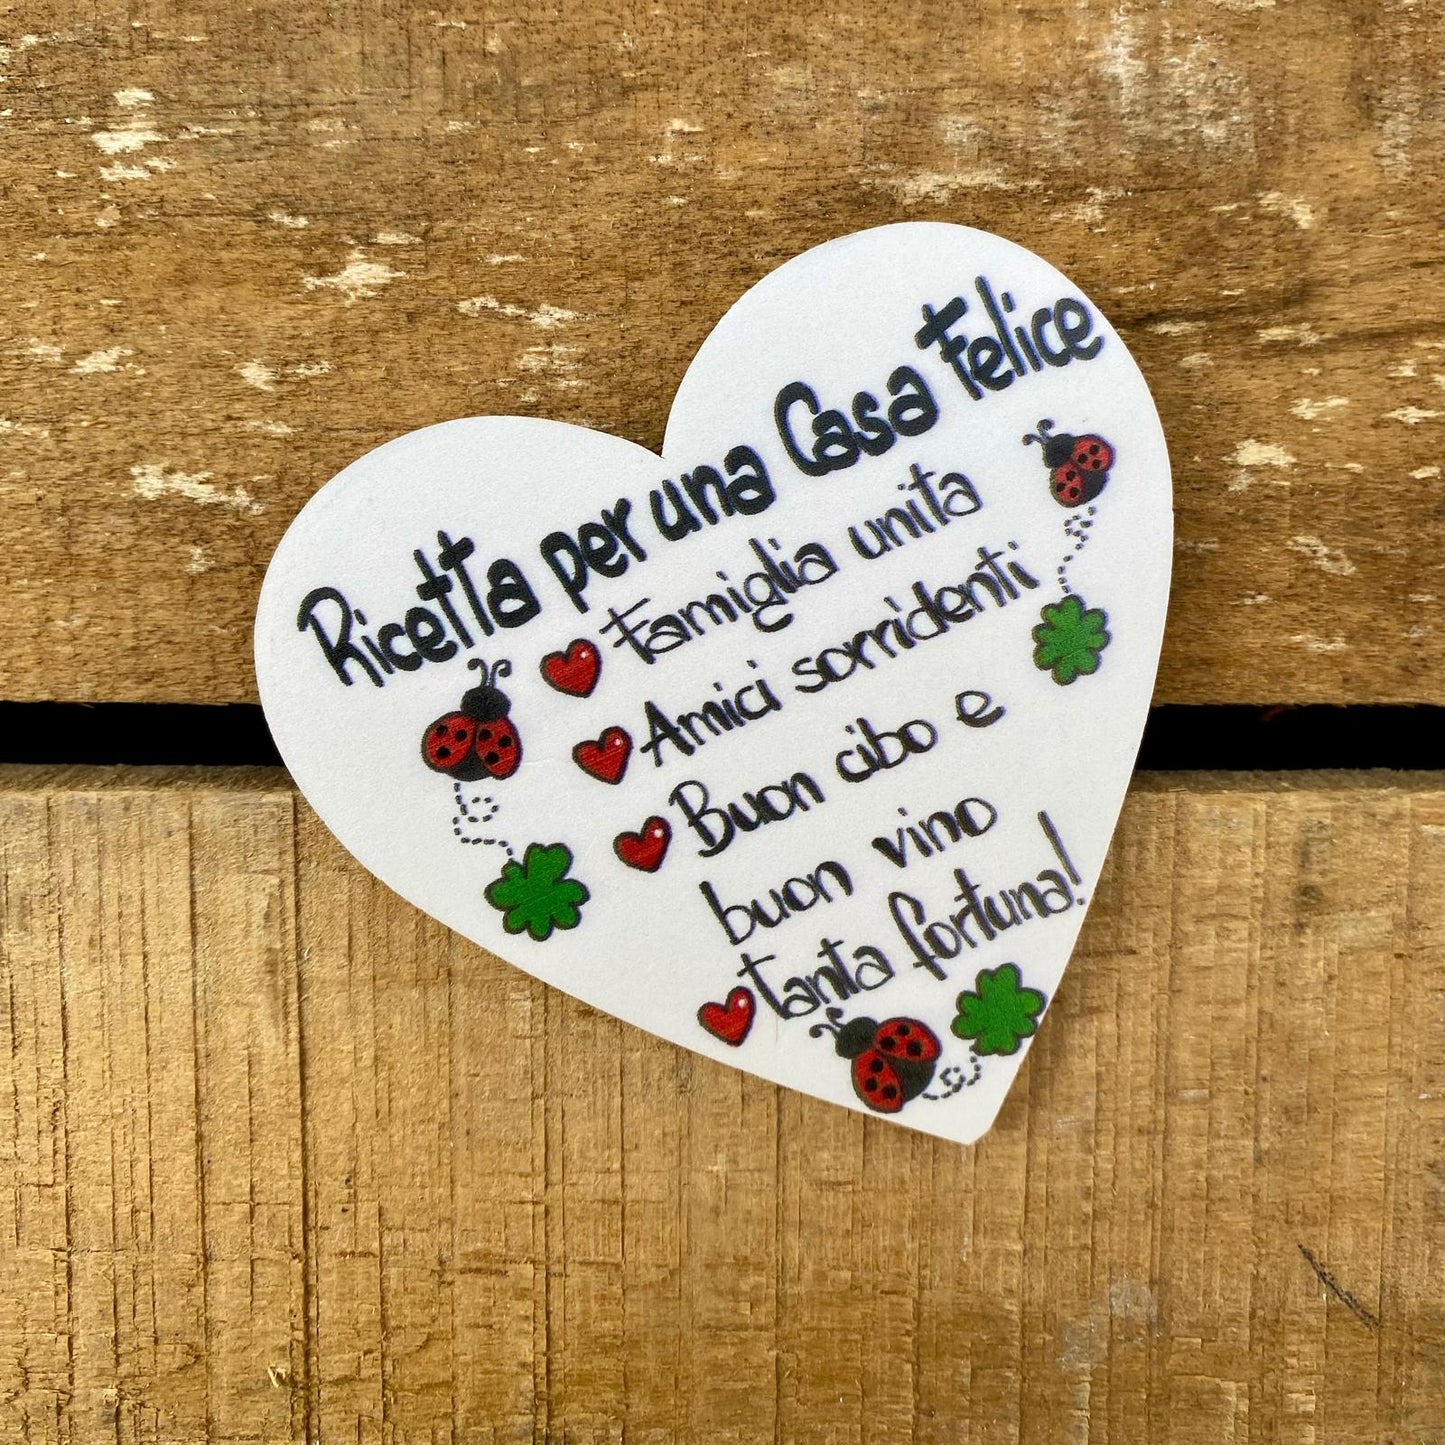 Ricetta per una Casa Felice
Famiglia unita
Amici sorridenti
Buon cibo e
buon vino
tanta fortuna!